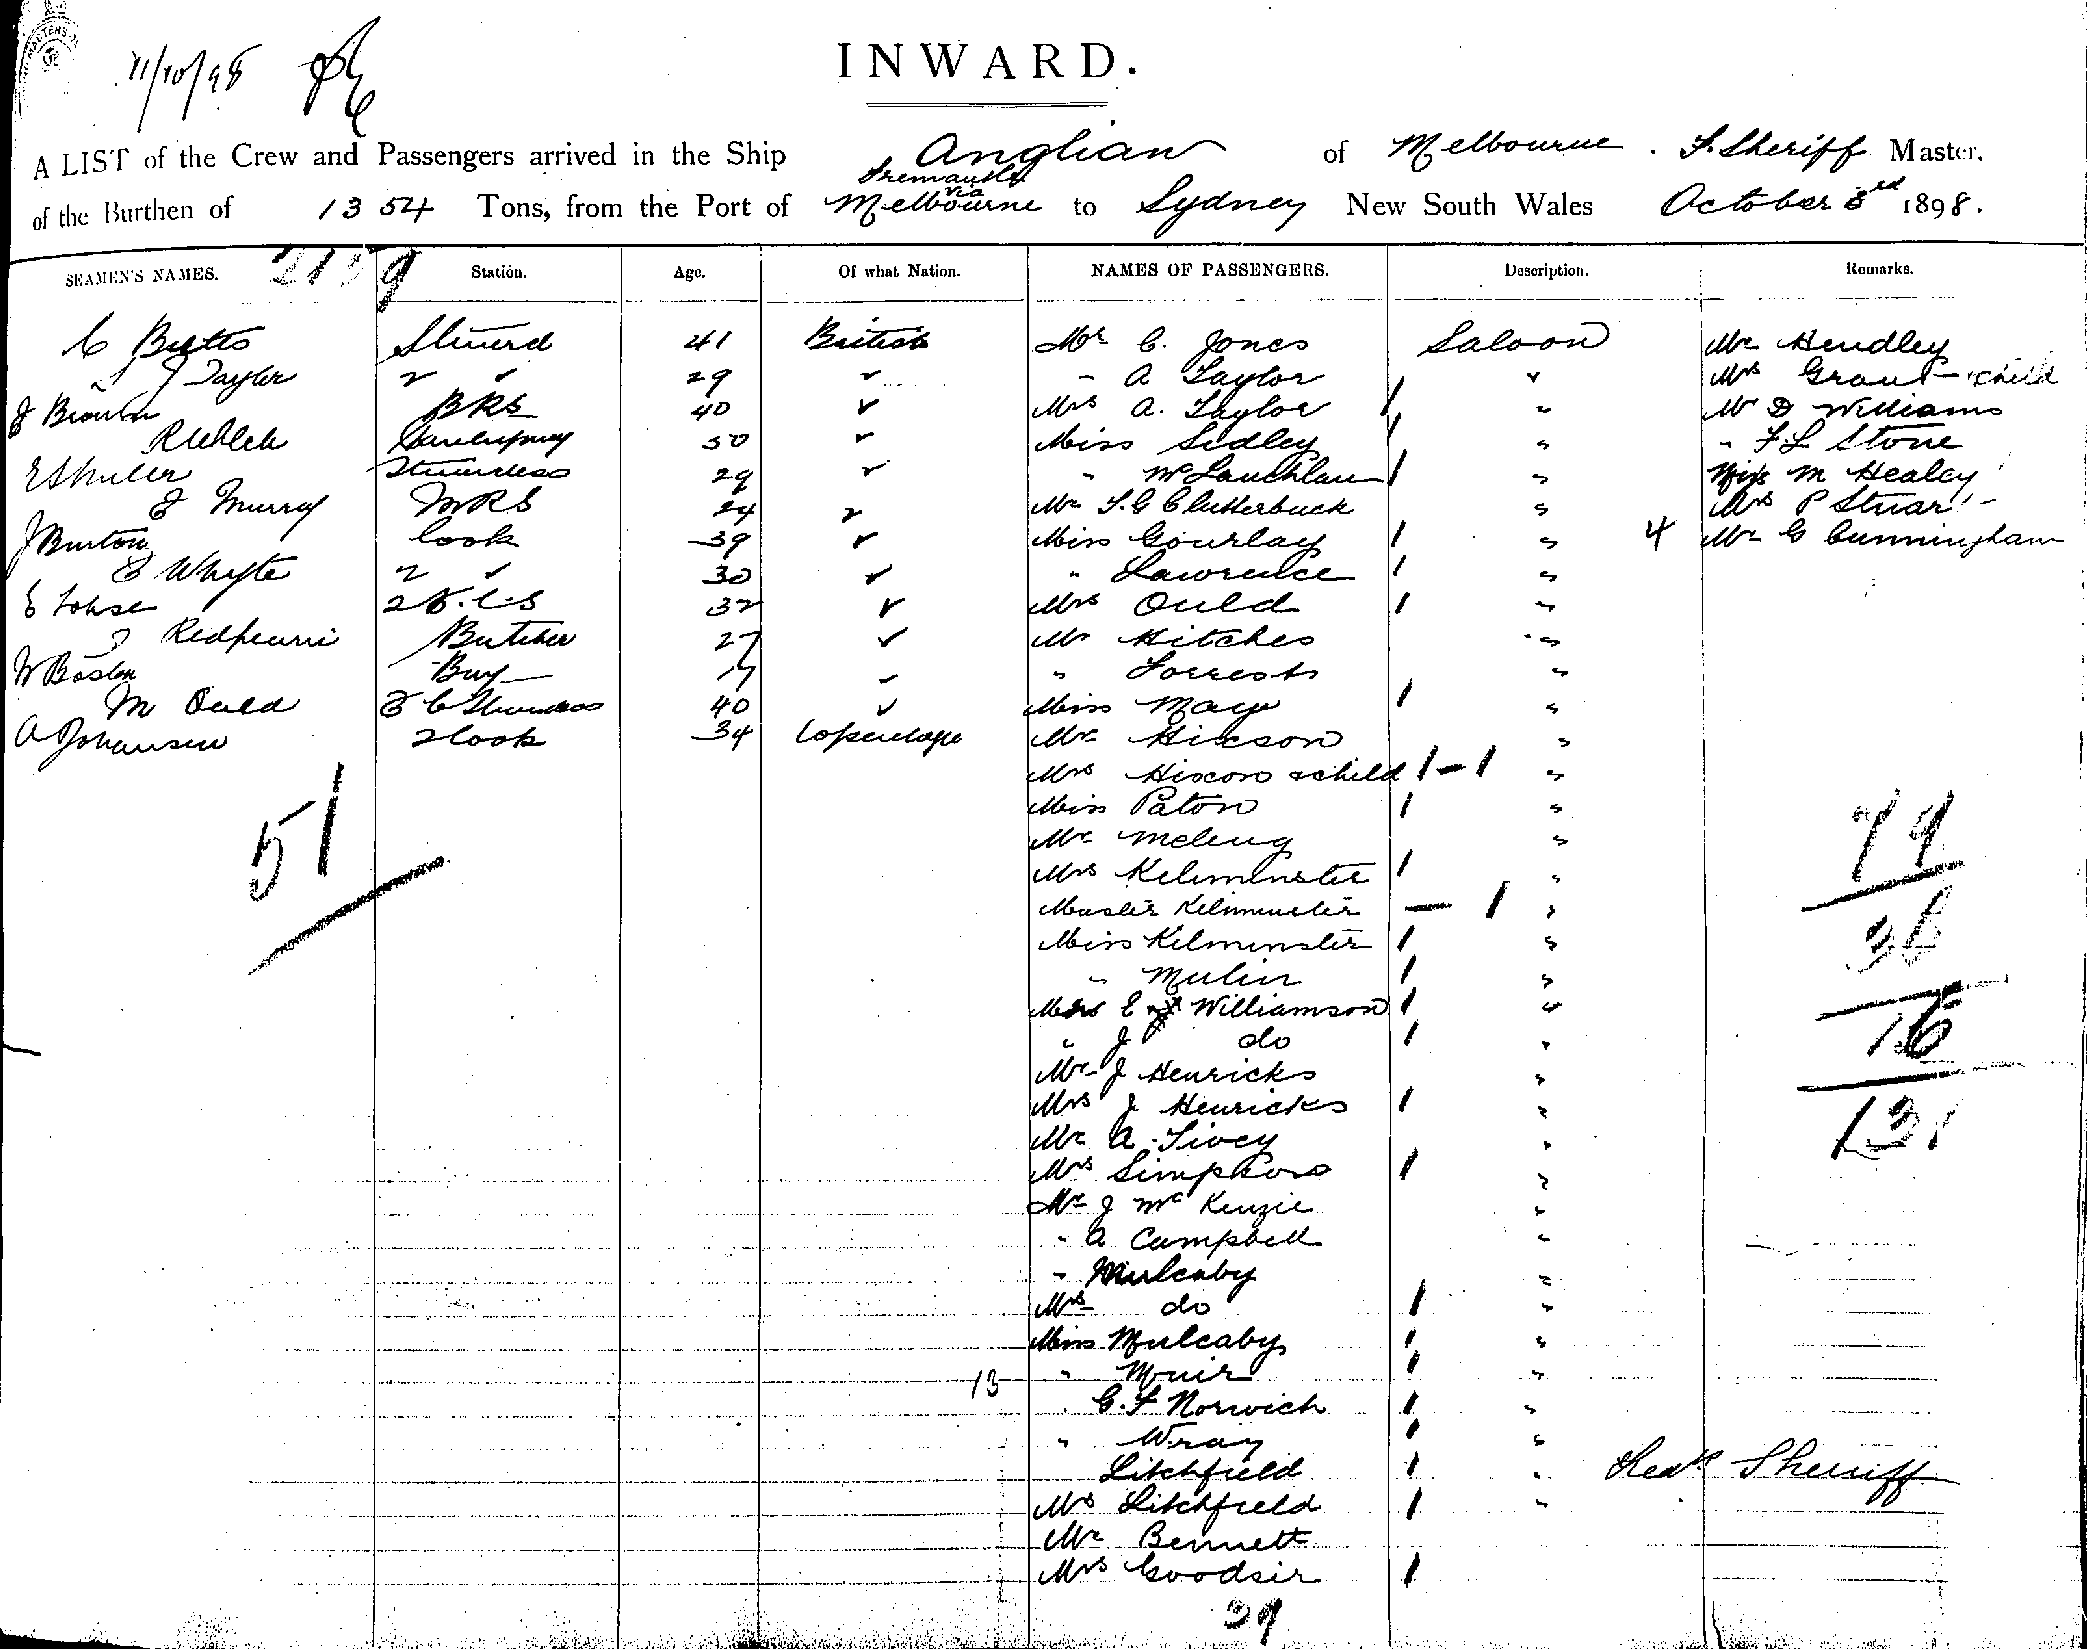 11/10/98
INWARD.
A LIST of the Crew and Passengers arrived in the Ship Anglian of Melbourne. F. Sheriff Master.
Fremantle
via
of the Burthen of 1354 Tons, from the Port of Melbourne to Sydney New South Wales October 3rd 1898.
2159
SEAMEN'S NAMES. Station. Age. Of what Nation. NAMES OF PASSENGERS. Description. Remarks.
C Butts 41 British Mr C. Jones Saloon Mr Hendley
J Taylor " " 29 " " A Taylor " Mrs Grant child
J Brown BRS 40 " Mrs A. Taylor 1 " Mr D Williams
30 " Miss Sedley 1 " " F L Stone
29 " " McLauchlan 1 " Miss M Healey
J Murray 24 " Mr F. G Clutterbuck " Mrs P Stuart
J Burton Cook 39 " Miss Gourlay 1 " 4 Mr G Cunningham
E Whyte " " 30 " " Lawrence 1 "
32 " Mrs Ould 1 "
Redfearn Butcher 27 " Mr Hitches "
W Boston Boy 17 " " Forrests "
M Ould 40 " Miss May 1 "
A Johansen 2 Cook 34 Mr Hixson "
Mrs Hixson & child 1 - 1 "
51
Miss Paton 1 "
Mr "
Mrs Kilminster 1 "
Master Kilminster - 1 "
Miss Kilminster 1 "
" Mulin 1 "
E Williamson 1 "
" J do 1 "
Mr J Henricks "
Mrs J Henricks 1 "
Mr A. Tivey "
Mrs Simpkins 1 "
Mr J McKenzie "
" A Campbell "
" Mulcahy "
Mrs do 1 "
Miss Mulcahy 1 "
13 " Muir 1 "
G. F Norwich 1 "
" Wray 1 "
Litchfield 1 "
Mrs Litchfield 1 "
Mr Bennett
Mrs Goodsir 1
39
79
36
16
131
Fredk Sheriff